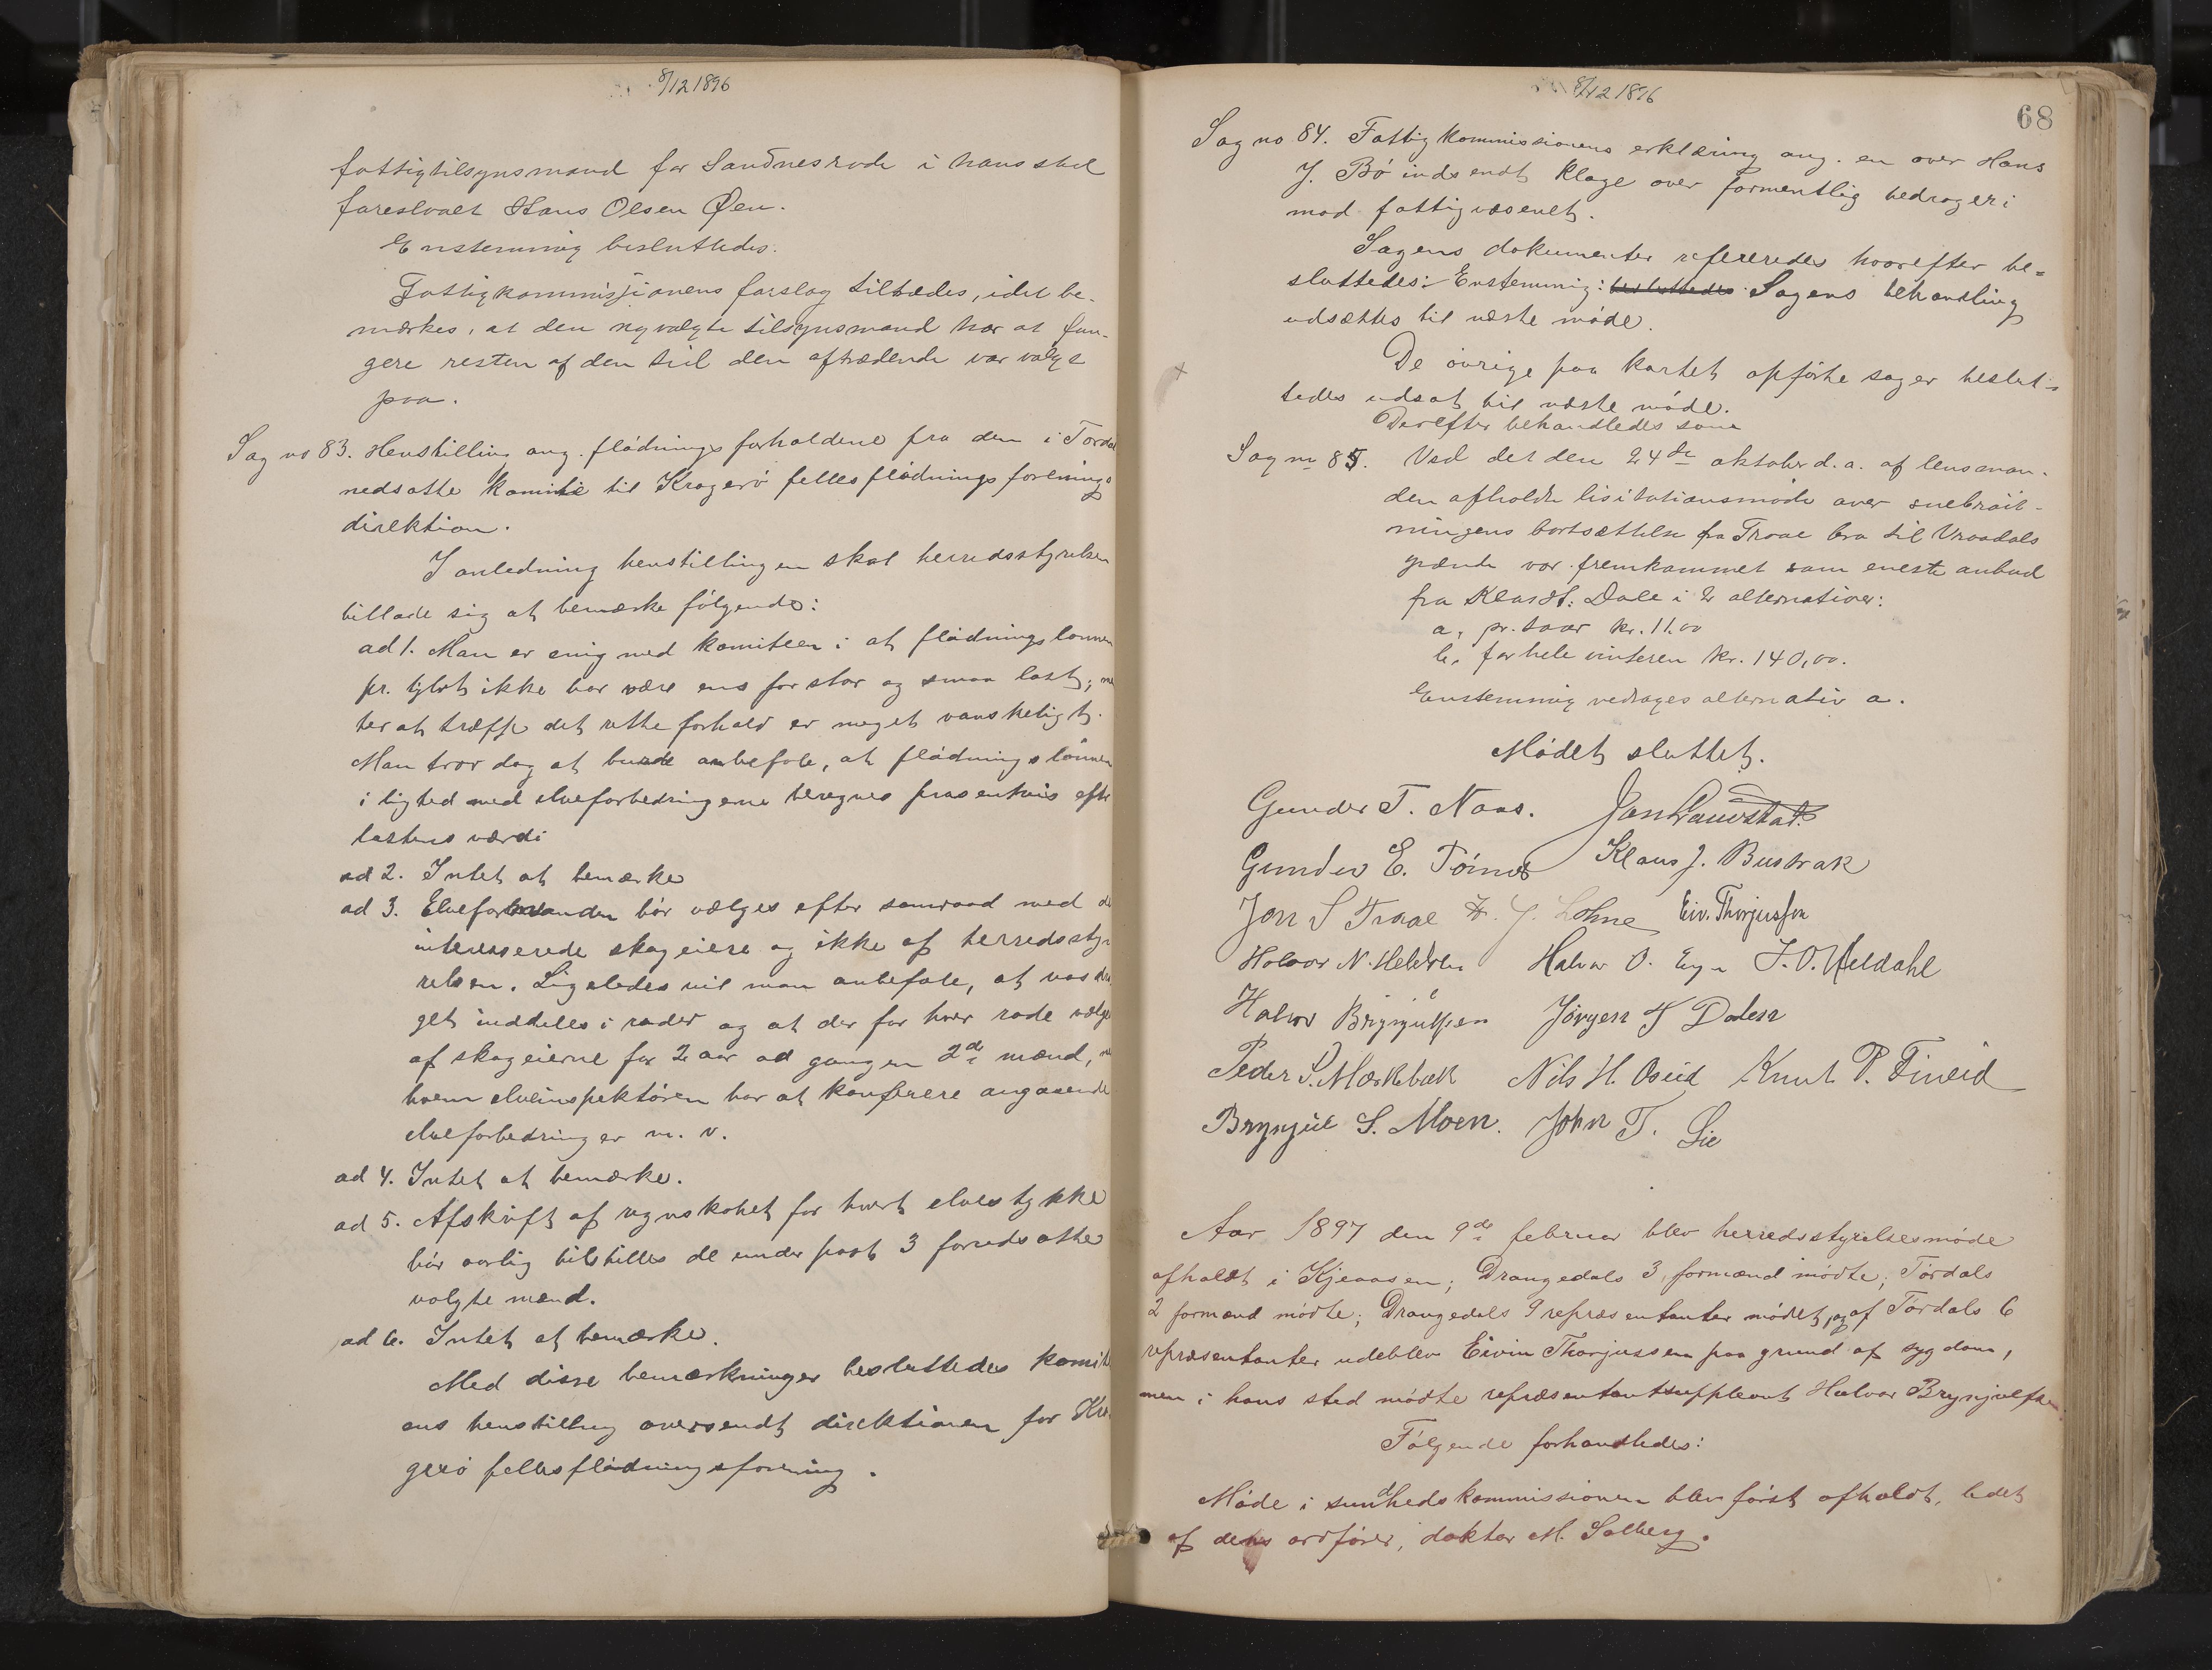 8/12 1896
fattigtilsynsmand for Sandnesrode i hans sted
foreslaaet Hans Olsen Øen.
Enstemmig besluttedes:
Fattigkommissjonens forslag tiltrædes, idet be-
mærkes, at den nyvalgte tilsynsmand har at fun-
gere resten af den tid den aftrædende var valgt
paa.
Sag no 83. Henstilling ang. flødningsforholdene fra den i Tørdal
nedsatte komite til Kragerø fellesflødningsforenings
direktion.
I anledning henstillingen skal herredsstyrelsen
tillade sig at bemærke følgende:
ad 1. Man er enig med komiteen i at flødningslønnen
pr. tylvt ikke bør være ens for stor og smaa last, men
at træffe det rette forhold er meget vanskeligt.
Man tror dog at burde anbefale, at flødningslønnen
i lighed med elveforbedringerne beregnes prosentvis efter
lastens værdi
ad 2. Intet at bemærke
ad 3. bør vælges efter samraad med de
interesserede skogeiere og ikke af herredssty-
relsen. Ligeledes vil man anbefale, at vasdra
get inddeles i roder og at der for hver rode vælges
af skogeierne for 2 aar ad gangen 2de mænd, med
hvem elveinspektøren har at konferere angaaende
elveforbedringer m. v.
ad 4. Intet at bemærke.
ad 5. Afskrift af regnskabet for hvert elvestykke
bør aarlig tilstilles de under post 3 forudsatte
valgte mænd.
ad 6. Intet at bemærke.
Med disse bemærkninger besluttedes komite
ens henstilling oversendt direktionen for Kra
gerø fellesflødningsforening.
8/12 1896
68
Sag no 84. Fattigkommissionens erklæring ang. en over Hans
J. Bø indsendt klage over formentlig bedrageri
mod fattigvæsenet.
Sagens dokumenter refereredes hvorefter be-
sluttedes: Enstemmig: besluttedes Sagens behandling
udsættes til næste møde.
De øvrige paa kartet opførte sager beslut-
tedes udsat til næste møde.
Derefter behandledes som
Sag no 85. Ved det den 24de oktober d.a. af lensman-
den afholdte lisitationsmøde over snebrøit-
ningens bortsættelse fra Traae bro til Vraadals
grænde var fremkommet som eneste anbud
fra Klas H. Dale i 2 alternativer:
a, pr. taar kr. 11.00
b, for hele vinteren kr. 140,00.
Enstemmig vedtages alternativ a.
Mødet sluttet.
Gunder T. Naas. Jan Gaustad
Gunder E. Klaus J. Bustrak
Jon S Traae H. J. Lohne Eiv. Thorjussen
Halvor N. Halvor O. J. O. Meldahl
Halvor Brynjulfsen Jørgen T Dalen
Peder S. Mærkebæk Nils H. Oseid Knut P. Tineid
Brynjul S. Moen. John T. Lie
Aar 1897 den 9de februar blev herredsstyrelsesmøde
afholdt i Kjeaasen; Drangedals 3 formænd mødte; Tørdals
2 formænd mødte; Drangedals 9 repræsentanter mødte, og af Tørdals 6
repræsentanter udeblev Eivin Thorjussen paa grund af sygdom,
men i hans sted mødte repræsentantsuppleant Halvor Brynjulfsen
Følgende forhandledes:
Møde i sundhedskommissionen blev først afholdt, ledet
af dens ordfører, doktor M. Solberg.